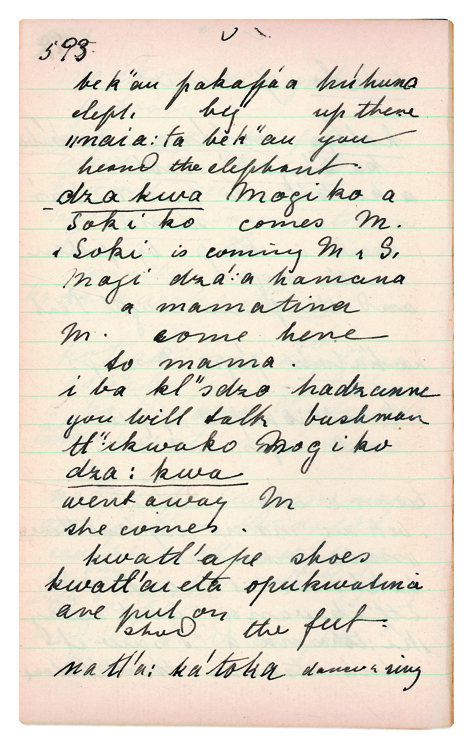 593
bek"au pakapáa húhuna
elept. big up there
"naia: ta bek"au you
heard the elephant.
dza kwa Mogi ko a
Soki ko comes M.
& Soki is coming M & S.
Mogi dzá:a hamana
a mamatina
M. come here
to mama.
i ba kl"sdzo hadzanne
you will talk bushman
tl"ikwako Mogi ko
dza: kwa
went away M
she comes.
kwatl'ape shoes
kwatl'aueta opukwatina
are put on
shoed the feet.
natl'a: ka'toka dance & sing